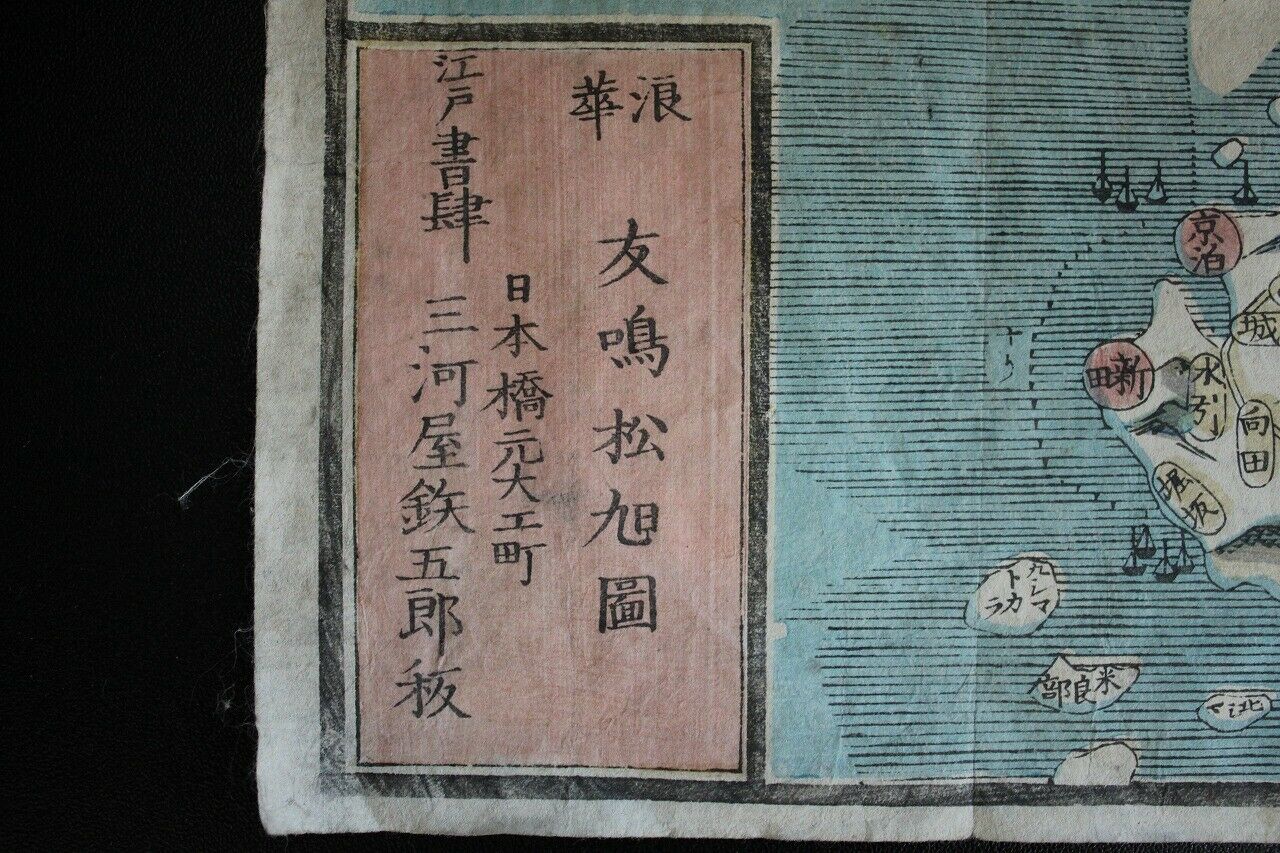 浪華
友鳴松旭圖
日本橋元大工町
江戸書肆
三河屋鉄五郎板
京泊
新田
水引
城
向田
堀坂
九シマ
トカラ
米良部